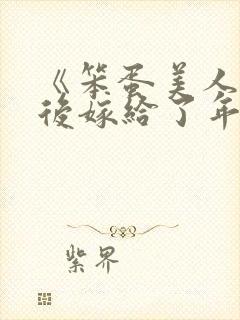 《笨蛋美人
後嫁給了年
紫界